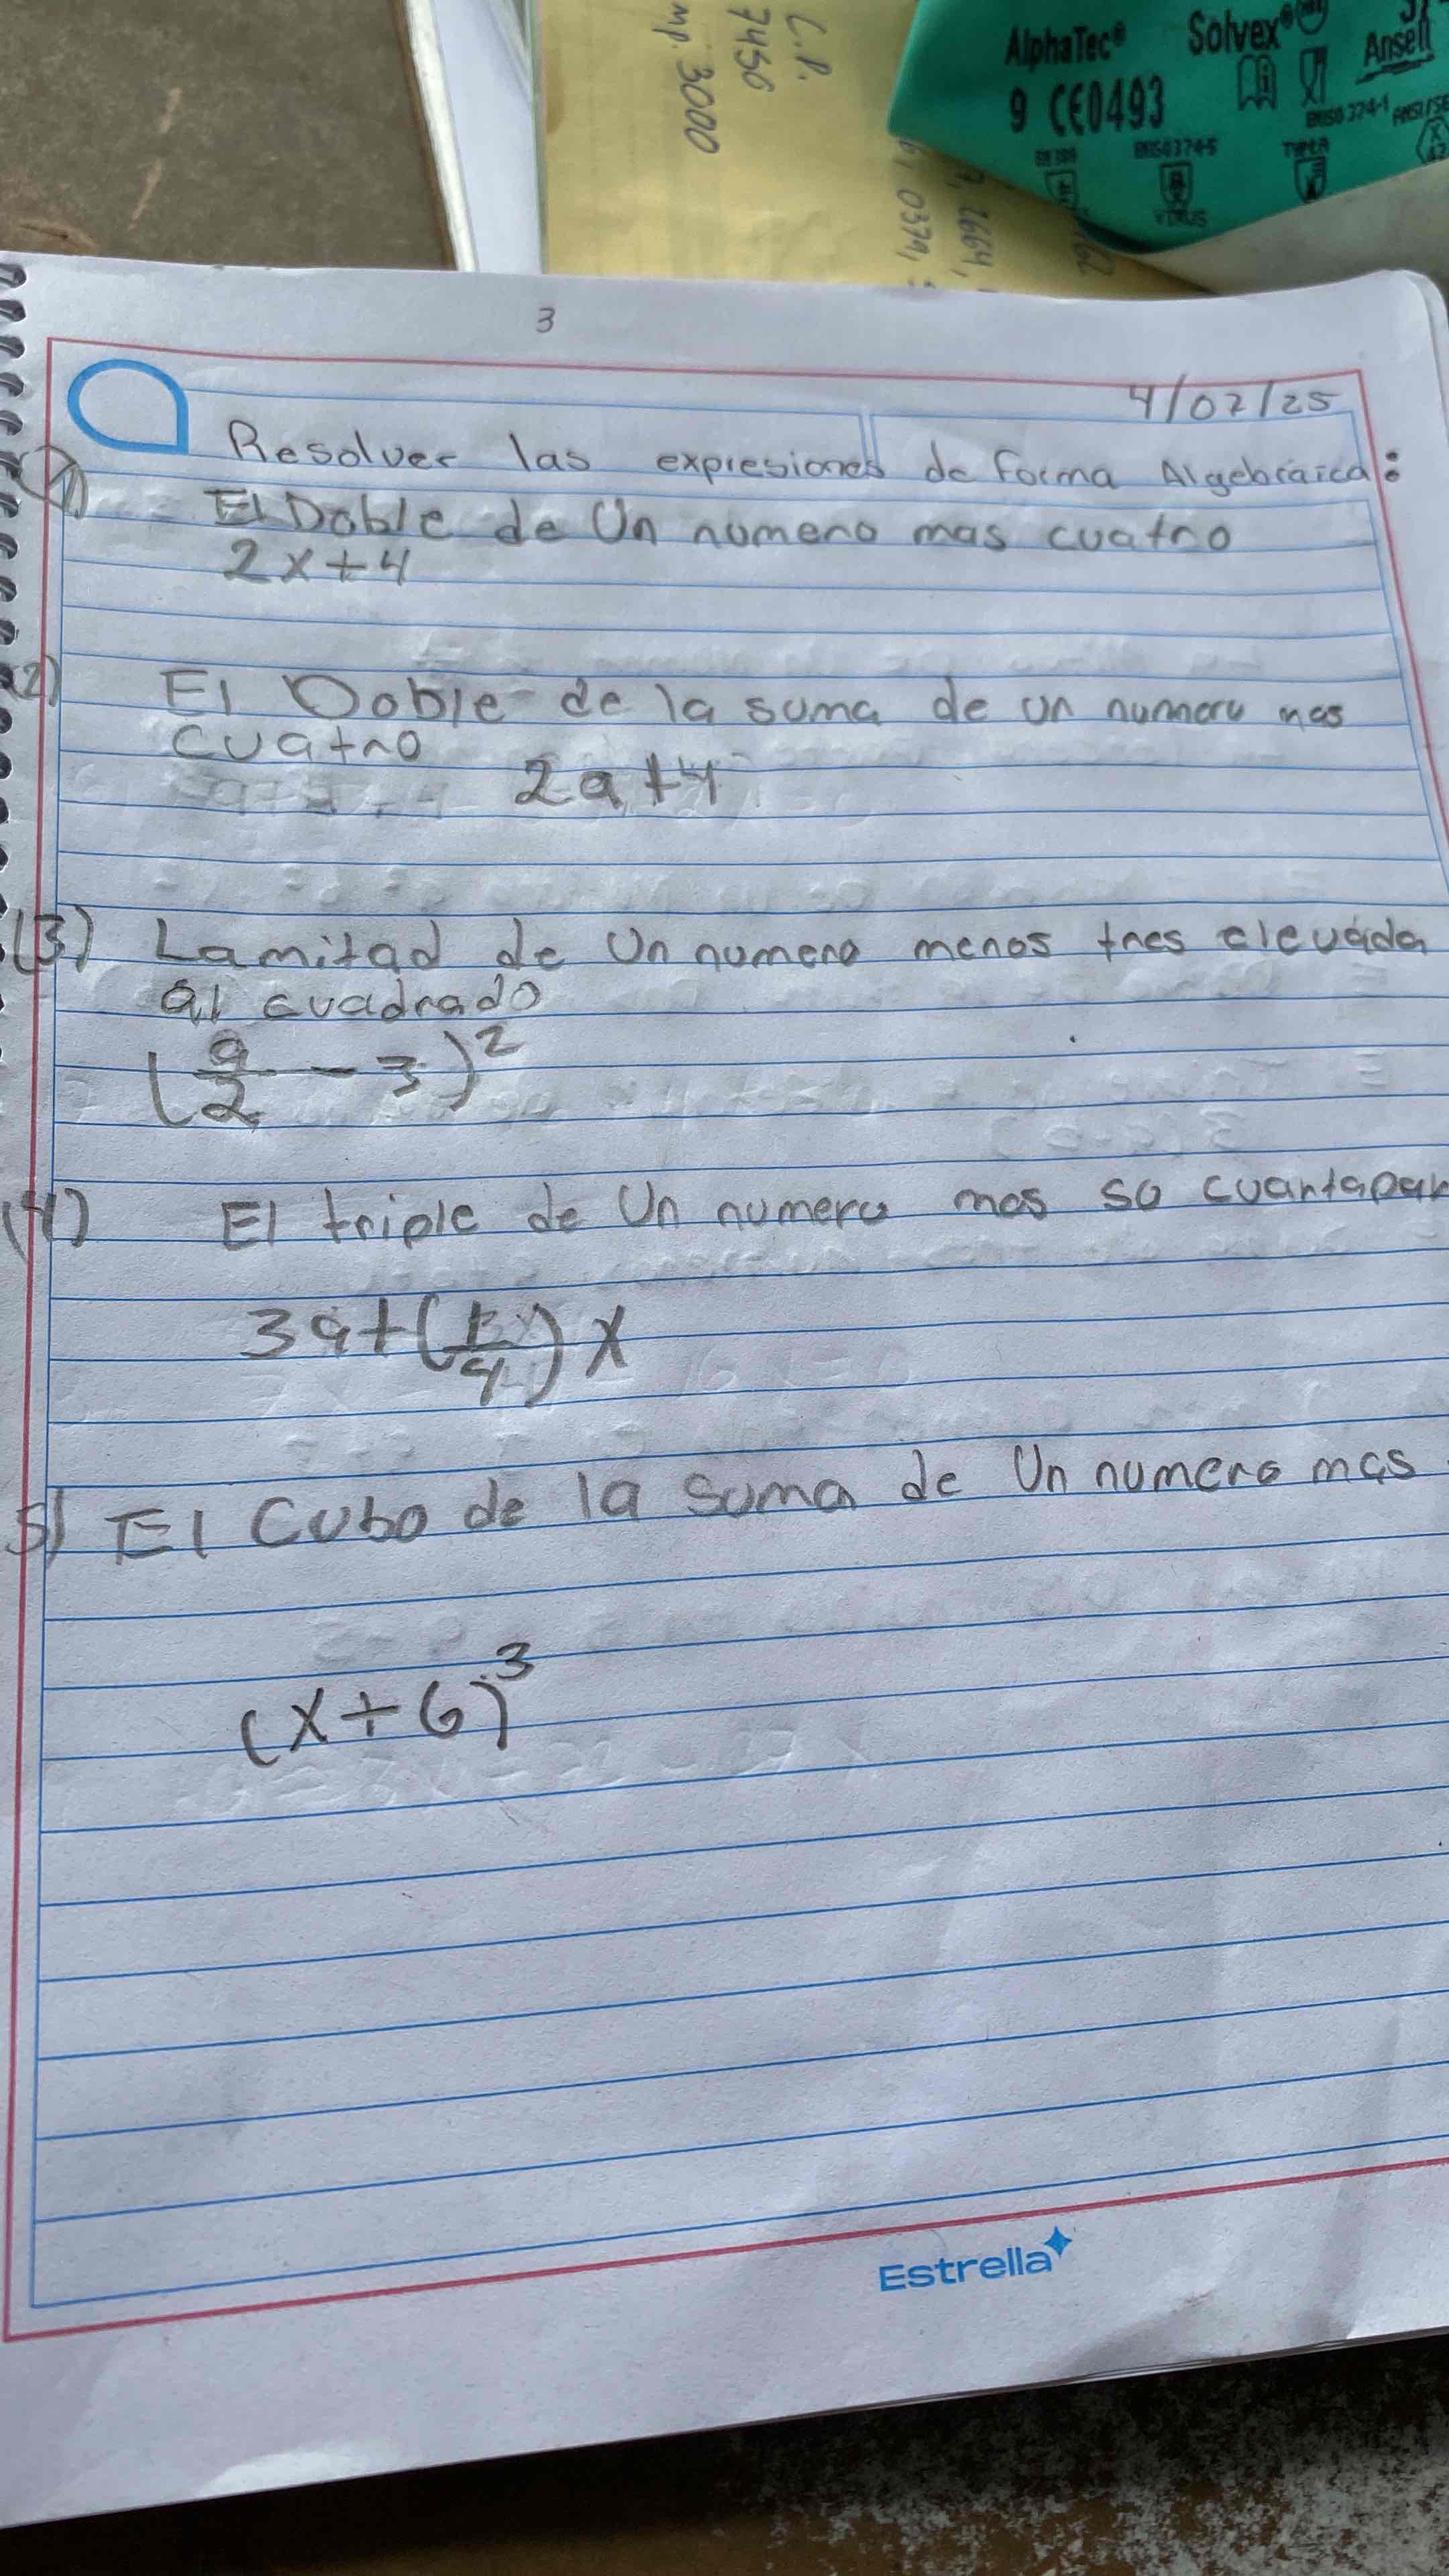 AlphaTec® Solvex®
Ansell
9 CE0493
EN ISO 374-1
EN 388
EN ISO 374-5
TYPE A
VIRUS
C.P.
7456
mp. 3000
3
4/02/25
Resolver las expresiones de forma Algebráica:
1) El Doble de Un numero mas cuatro
2x+4
2) El Doble de la suma de un numero mas
cuatro
2a+4
(3) La mitad de Un numero menos tres elevada
al cuadrado
(a/2 - 3)²
(4) El triple de Un numero mas su cuarta par
3a+( /4)x
5) El Cubo de la suma de Un numero mas
(x+6)³
Estrella